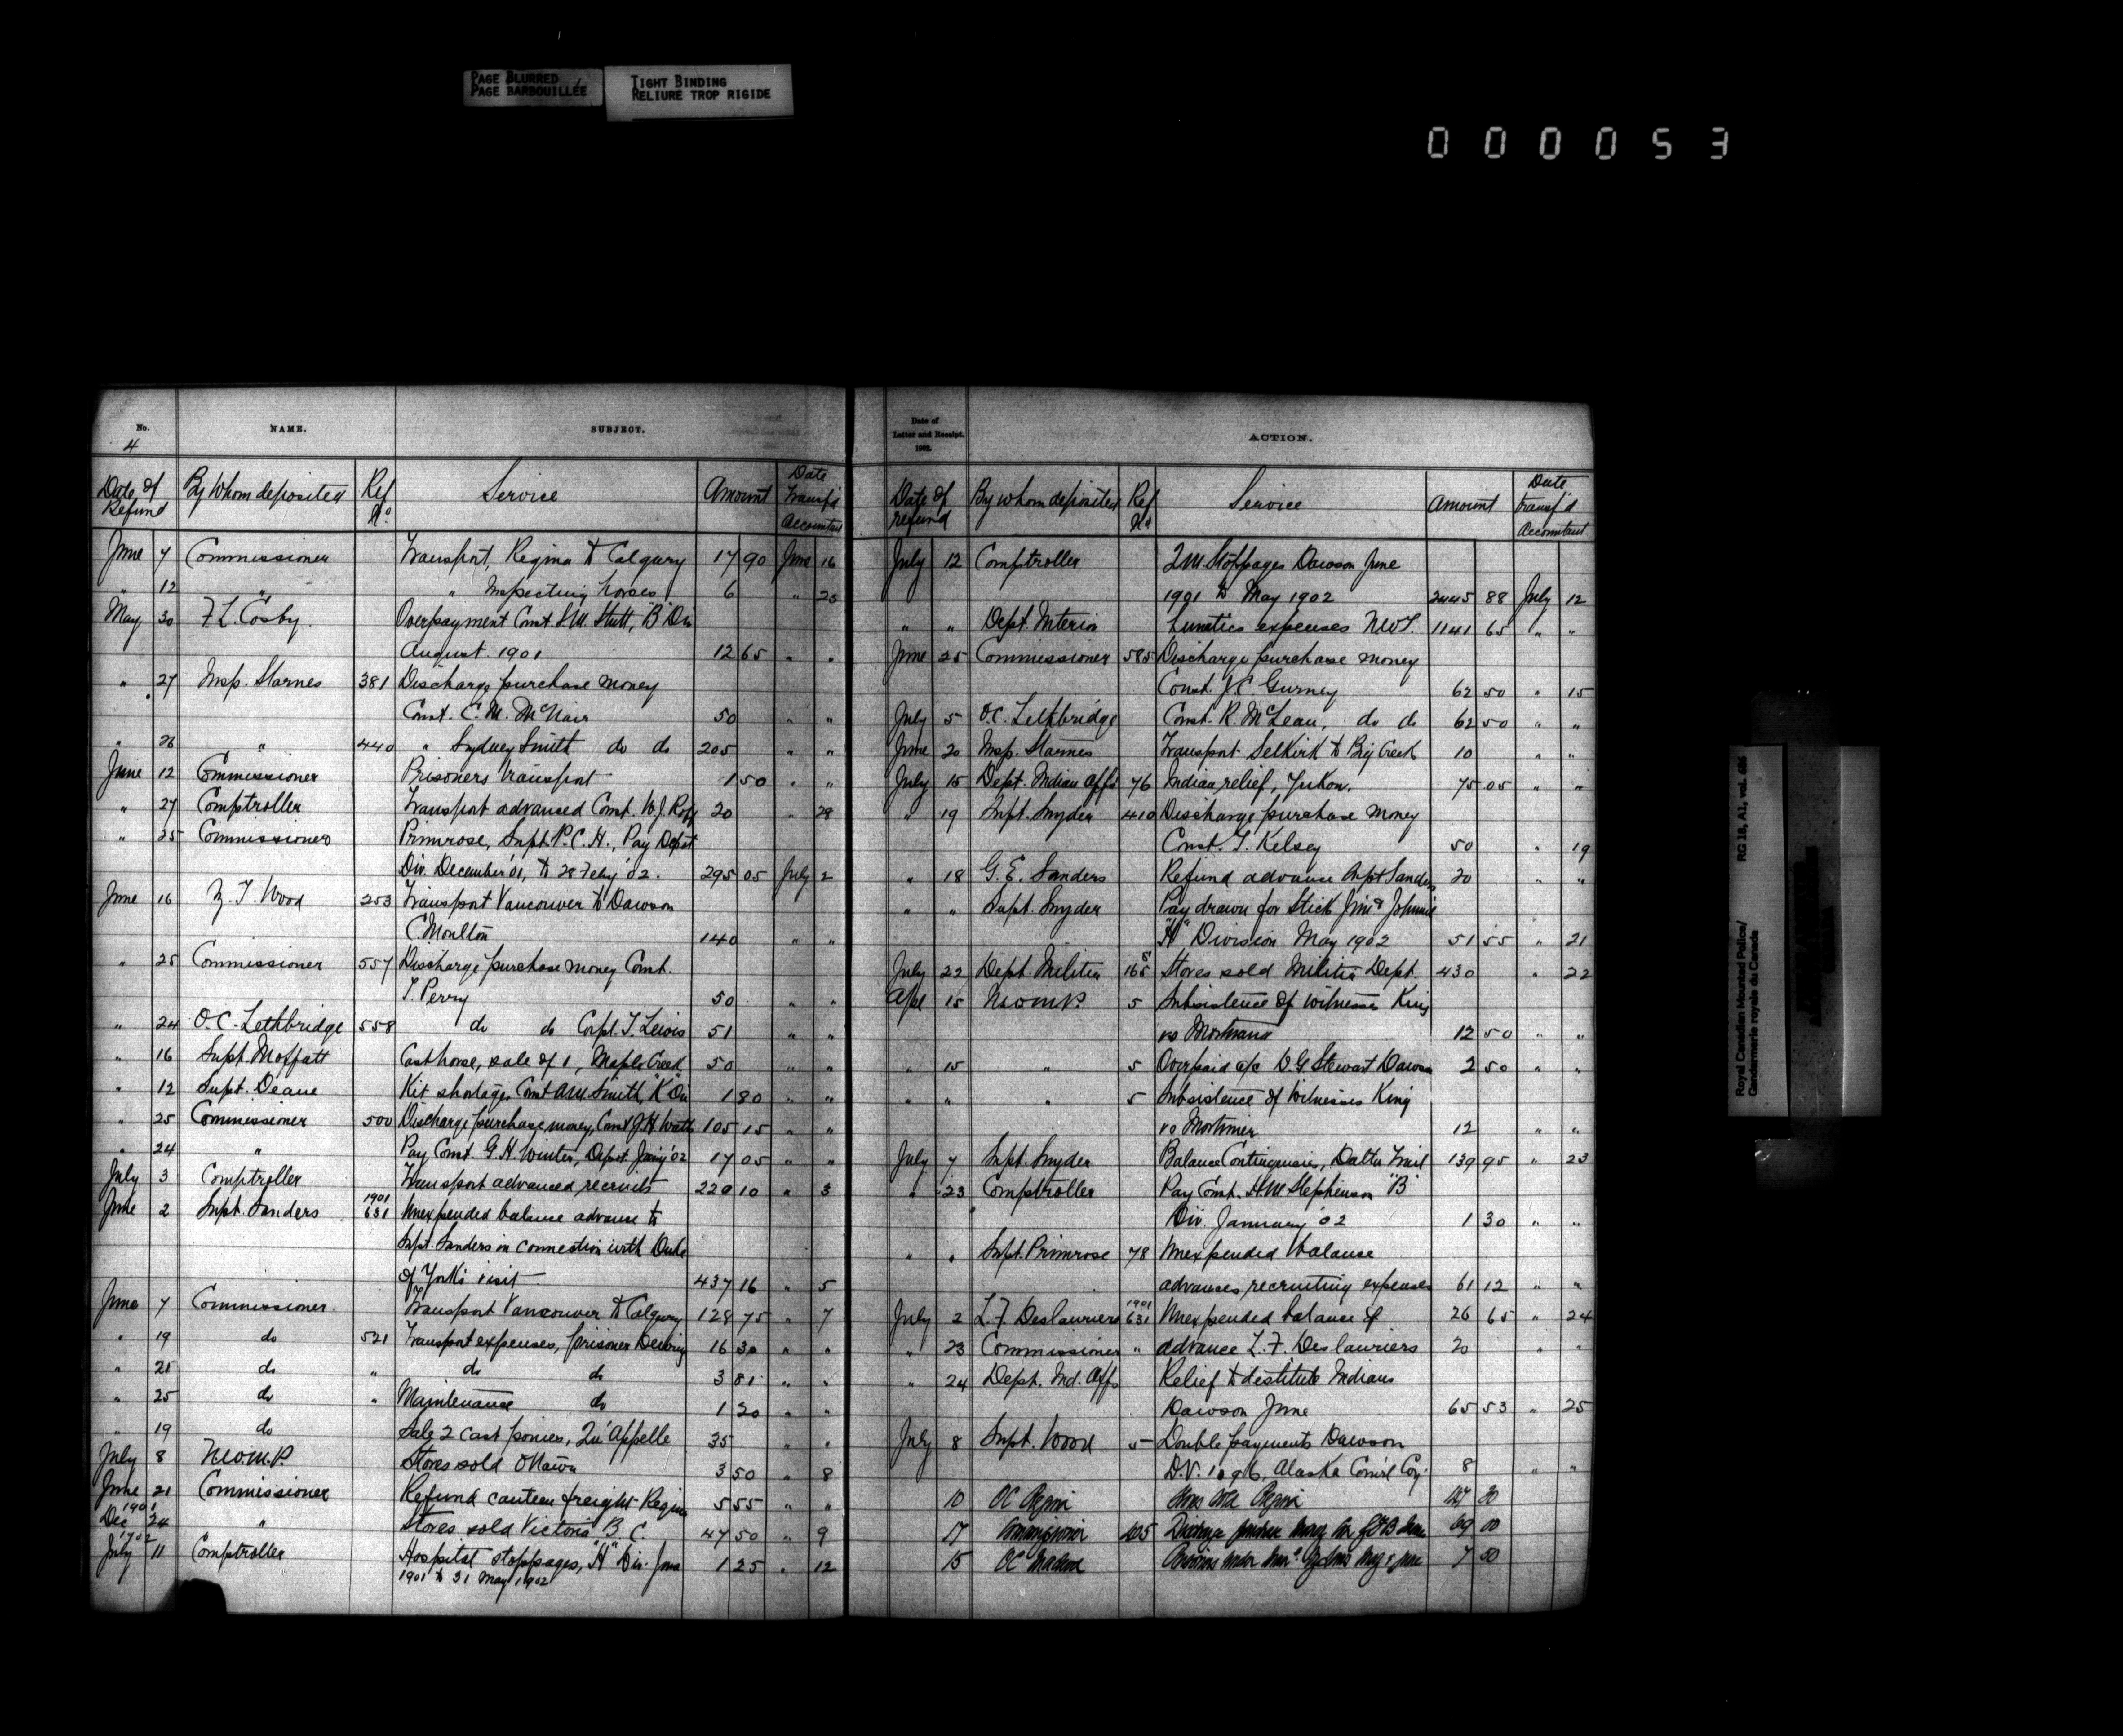 PAGE BLURRED
PAGE BARBOUILLÉE
TIGHT BINDING
RELIURE TROP RIGIDE
000053
No. NAME. SUBJECT.
4
Date of Refund By Whom deposited Ref No. Service Amount Date transf'd Accountant
June 7 Commissioner Transport, Regina to Calgary 17 90 June 16
" 12 " " Inspecting horses 6 " 23
May 30 F. L. Cosby. Overpayment Const "B" Div
August 1901 12 65 " "
" 27 Insp. Starnes 381 Discharge purchase money
Const. C. M. McNair 50 " "
" 26 " 440 " Sydney Smith do do 205 " "
June 12 Commissioner Prisoners transport 1 50 " "
" 27 Comptroller Transport advanced Const. W. J. 20 " 28
" 25 Commissioner Primrose, Supt. P. C. H., Pay Depot
Div. December '01, to 28 Feby '02. 295 05 July 2
June 16 Z. T. Wood 253 Transport Vancouver to Dawson
C. Moulton 140 " "
" 25 Commissioner 557 Discharge purchase money Const.
T. Perry 50 " "
" 24 O.C. Lethbridge 558 do do Corpl. T. Lewis 51 " "
" 16 Supt. Moffatt Cast horse, sale of 1, Maple Creek 50 " "
" 12 Supt. Deane Kit shortages Const A.M. Smith, "K" Div 1 80 " "
" 25 Commissioner 500 Discharge purchase money, Const J. H. 105 15 " "
" 24 " Pay Const. G. H. Winter, Depot Jany '02 17 05 " "
July 3 Comptroller Transport advanced recruits 220 10 " 3
June 2 Supt. Sanders 1901 631 Unexpended balance advance to
Supt. Sanders in connection with Duke
of York's visit 437 16 " 5
June 7 Commissioner. Transport Vancouver to Calgary 128 75 " 7
" 19 do 521 Transport expenses, prisoner 16 30 " "
" 21 do " do do 3 81 " "
" 25 do " Maintenance do 1 20 " "
" 19 do Sale 2 cast ponies, Qu'Appelle 35 " "
July 8 N.W.M.P. Stores sold Ottawa 3 50 " 8
June 21 Commissioner Refund canteen freight Regina 5 55 " "
1901 Dec 24 " Stores sold Victoria B. C. 47 50 " 9
1902 July 11 Comptroller Hospital stoppages, "H" Div. June 1 25 " 12
1901 to 31 May 1902
Date of Letter and Receipt. 1902. ACTION.
Date of refund By whom deposited Ref No. Service Amount Date transf'd Accountant
July 12 Comptroller Stoppages Dawson June
1901 to May 1902 2445 88 July 12
" " Dept. Interior Lunatics expenses N.W.T. 1141 65 " "
June 25 Commissioner 585 Discharge purchase money
Const. J. C. Gurney 62 50 " 15
July 5 O.C. Lethbridge Const. R. McLean, do do 62 50 " "
June 20 Insp. Starnes Transport Selkirk to Big Creek 10 " "
July 15 Dept. Indian Affs 76 Indian relief, Yukon. 75 05 " "
" 19 Supt. Snyder 410 Discharge purchase money
Const. T. Kelsey 50 " 19
" 18 G. E. Sanders Refund advance Supt Sanders 20 " "
" " Supt. Snyder Pay drawn for Stick Jim & Johnnie
"H" Division May 1902 51 55 " 21
July 22 Dept. Militia Stores sold Militia Dept. 430 " 22
Apl 15 N.W.M.P. 5 Subsistence of witnesses King
vs 12 50 " "
" 15 " 5 Overpaid a/c D. G. Stewart Dawson 2 50 " "
" " " 5 Subsistence of witnesses King
vs Mortimer 12 " "
July 7 Supt. Snyder Balance Contingencies, Dalton Trail 139 95 " 23
" 23 Comptroller Pay Const. H. M. Stephenson "B"
Div. January '02 1 30 " "
" " Supt. Primrose 78 Unexpended balance
advances recruiting expenses 61 12 " "
July 2 L. F. Deslauriers 1901 631 Unexpended balance of 26 65 " 24
" 23 Commissioner " advance L. F. Deslauriers 20 " "
" 24 Dept. Ind. Affs Relief to destitute Indians
Dawson June 65 53 " 25
July 8 Supt. Wood 5 Double payments Dawson
D.V. 1096, Alaska Com'l Coy. 8 " "
10 OC Regina Stores sold Regina 30
17 Commissioner 605 Discharge purchase money 69 00
15 OC 7 50
Royal Canadian Mounted Police/ RG 18, A1, vol. 626
Gendarmerie royale du Canada